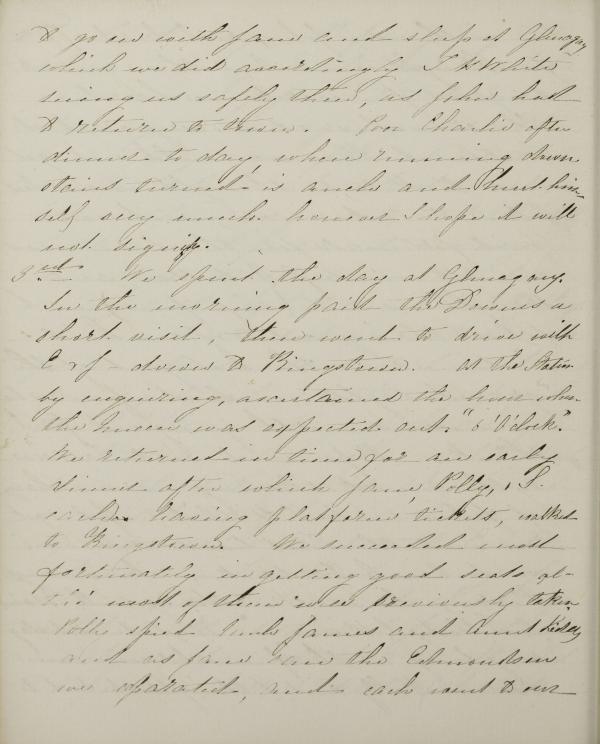 & go on with Jane and sleep at Glenageary
which we did accordingly J H White
us safely there, as John had
to return to town. Poor Charlie after
dinner to day, when running down
stairs turned is ancle and hurt him-
self very much. however I hope it will
not signify.
3rd We spent the day at Glenageary.
In the morning paid the Downs a
short visit, then went to drive with
E & J - down to Kingstown. at the Station
by enquiring, ascertained the hour when
the Queen was expected out. "6 'O'clock".
We returned in time for an early
dinner after which Jane, Polly, & I.
each having platform tickets, walked
to Kingstown. We succeeded most
fortunately in getting good seats al-
tho' most of them were previously taken
Polly spied Uncle James and Aunt
and as Jane saw the Edmondson
we separated, and each went to our